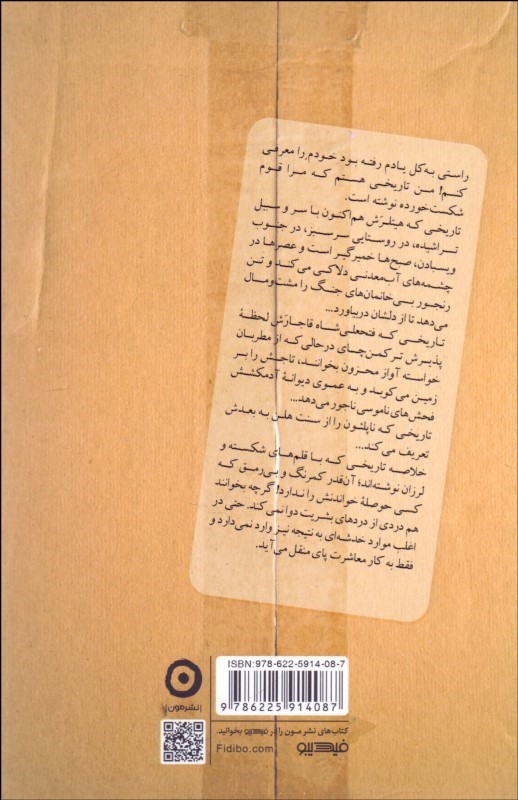 راستی به‌کل یادم رفته بود خودم را معرفی
کنم! من تاریخی هستم که مرا قوم
شکست‌خورده نوشته است.
تاریخی که هیتلرش هم‌اکنون با سر و سبیل
تراشیده، در روستایی سرسبز، در جنوب
ویسبادن، صبح‌ها خمیرگیر است و عصرها در
چشمه‌های آب‌معدنی دلاکی می‌کند و تن
رنجور بی‌خانمان‌های جنگ را مشت‌ومال
می‌دهد تا از دلشان دربیاورد...
تاریخی که فتحعلی‌شاه قاجارَش لحظهٔ
پذیرش ترکمن‌چای درحالی‌که از مطربان
خواسته آواز محزون بخوانند، تاجش را بر
زمین می‌کوبد و به عموی دیوانهٔ آدمکشش
فحش‌های ناموسی ناجور می‌دهد...
تاریخی که ناپلئون را از سنت هلن به بعدش
تعریف می‌کند...
خلاصه تاریخی که با قلم‌های شکسته و
لرزان نوشته‌اند؛ آن‌قدر کمرنگ و بی‌رمق که
کسی حوصلهٔ خواندنش را ندارد! گرچه بخوانند
هم دردی از دردهای بشریت دوا نمی‌کند. حتی در
اغلب موارد خدشه‌ای به نتیجه نیز وارد نمی‌دارد و
فقط به کار معاشرت پای منقل می‌آید.
ISBN: 978-622-5914-08-7
9 786225 914087
نشر مون
کتاب‌های نشر مون را در فیدیبو بخوانید.
فیدیبو
Fidibo.com